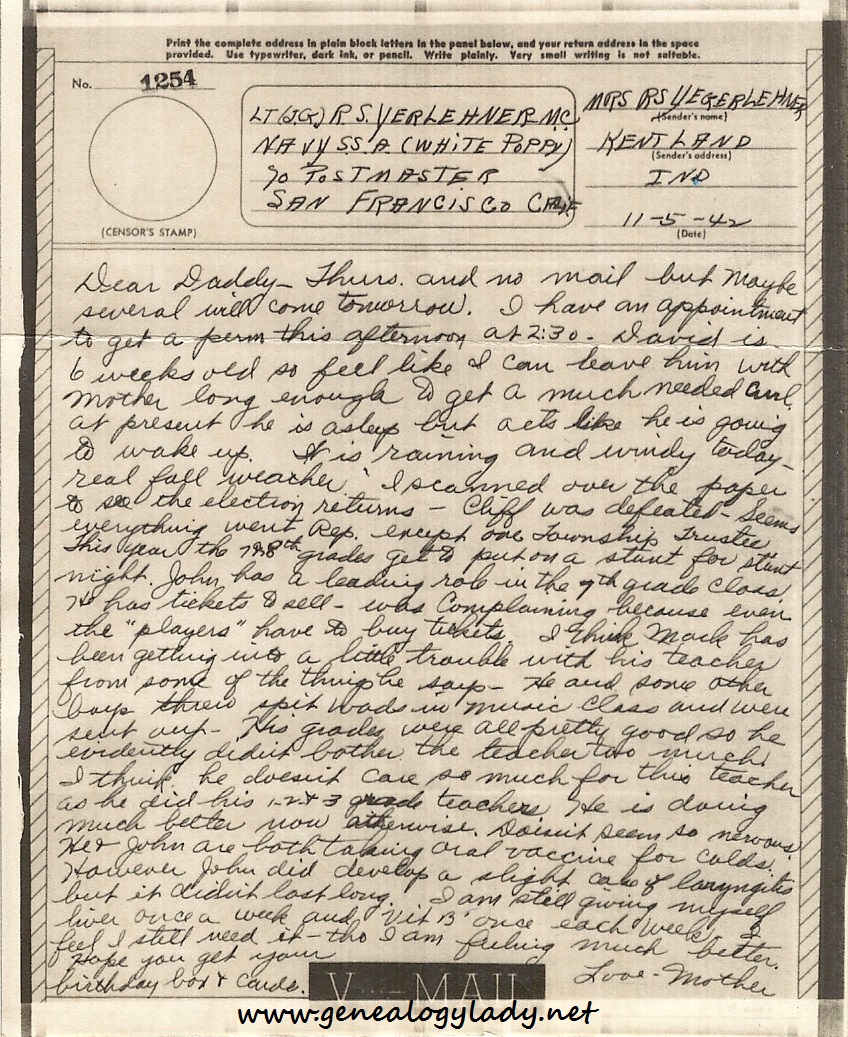 Print the complete address in plain block letters in the panel below, and your return address in the space
provided. Use typewriter, dark ink, or pencil. Write plainly. Very small writing is not suitable.
No. 1254
(CENSOR'S STAMP)
LT (J.G.) R S. YERLEHNER M.C.
NAVY SS A (WHITE POPPY)
% POSTMASTER
SAN FRANCISCO CALIF
MRS RS YEGERLEHNER
(Sender's name)
KENTLAND
(Sender's address)
IND
11-5-42
(Date)
Dear Daddy— Thurs. and no mail but maybe
several will come tomorrow. I have an appointment
to get a perm this afternoon at 2:30. David is
6 weeks old so feel like I can leave him with
mother long enough to get a much needed curl.
at present he is asleep but acts like he is going
to wake up. It is raining and windy today—
real fall weather. I scanned over the paper
to see the election returns — Cliff was defeated— Seems
everything went Rep. except one Township Trustee
This year the 7&8th grades get to put on a stunt for stunt
night. John has a leading role in the 7th grade class.
He has tickets to sell — was complaining because even
the "players" have to buy tickets. I think Mack has
been getting into a little trouble with his teacher
from some of the things he says— He and some other
boys threw spit wads in music class and were
sent out— His grades were all pretty good so he
evidently didn't bother the teacher too much!
I think he doesn't care so much for this teacher
as he did his 1-2 & 3 grade teachers. He is doing
much better now otherwise. Doesn't seem so nervous.
He & John are both taking oral vaccine for colds.
However John did develop a slight case of laryngitis
but it didn't last long. I am still giving myself
liver once a week and Vit 'B' once each week. I
feel I still need it — tho I am feeling much better.
Hope you get your
birthday box & cards.
Love — Mother
V···—MAIL
www.genealogylady.net